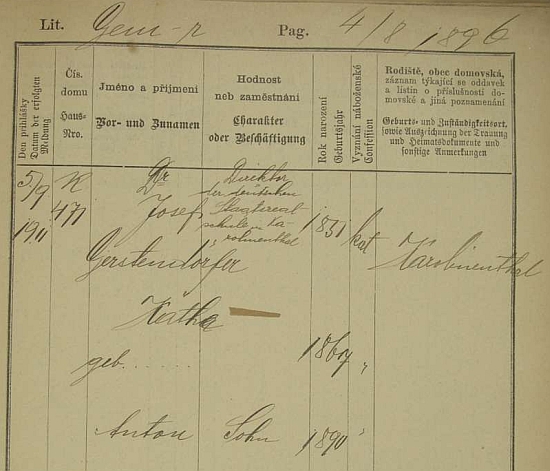 Lit. Gem-r Pag. 4/8 1896
Den přihlášky
Datum der erfolgten
Meldung
Čís.
domu
Haus-
Nro.
Jméno a příjmení
Vor- und Zunamen
Hodnost
neb zaměstnání
Charakter
oder Beschäftigung
Rok narození
Geburtsjahr
Vyznání náboženské
Confession
Rodiště, obec domovská,
záznam týkající se oddavek
a listin o příslušnosti do-
movské a jiná poznamenání
Geburts- und Zuständigkeitsort,
sowie Aufzeichnung der Trauung
und Heimatsdokumente und
sonstige Anmerkungen
5/9 1911
K 477
Dr
Josef
Gerstendörfer
Direktor
der deutschen
Staatsreal
schule Ka-
rolinenthal
1851
kat
Karolinenthal
Hertha
geb. . . . . . .
1867 "
Anton Sohn 1890 "